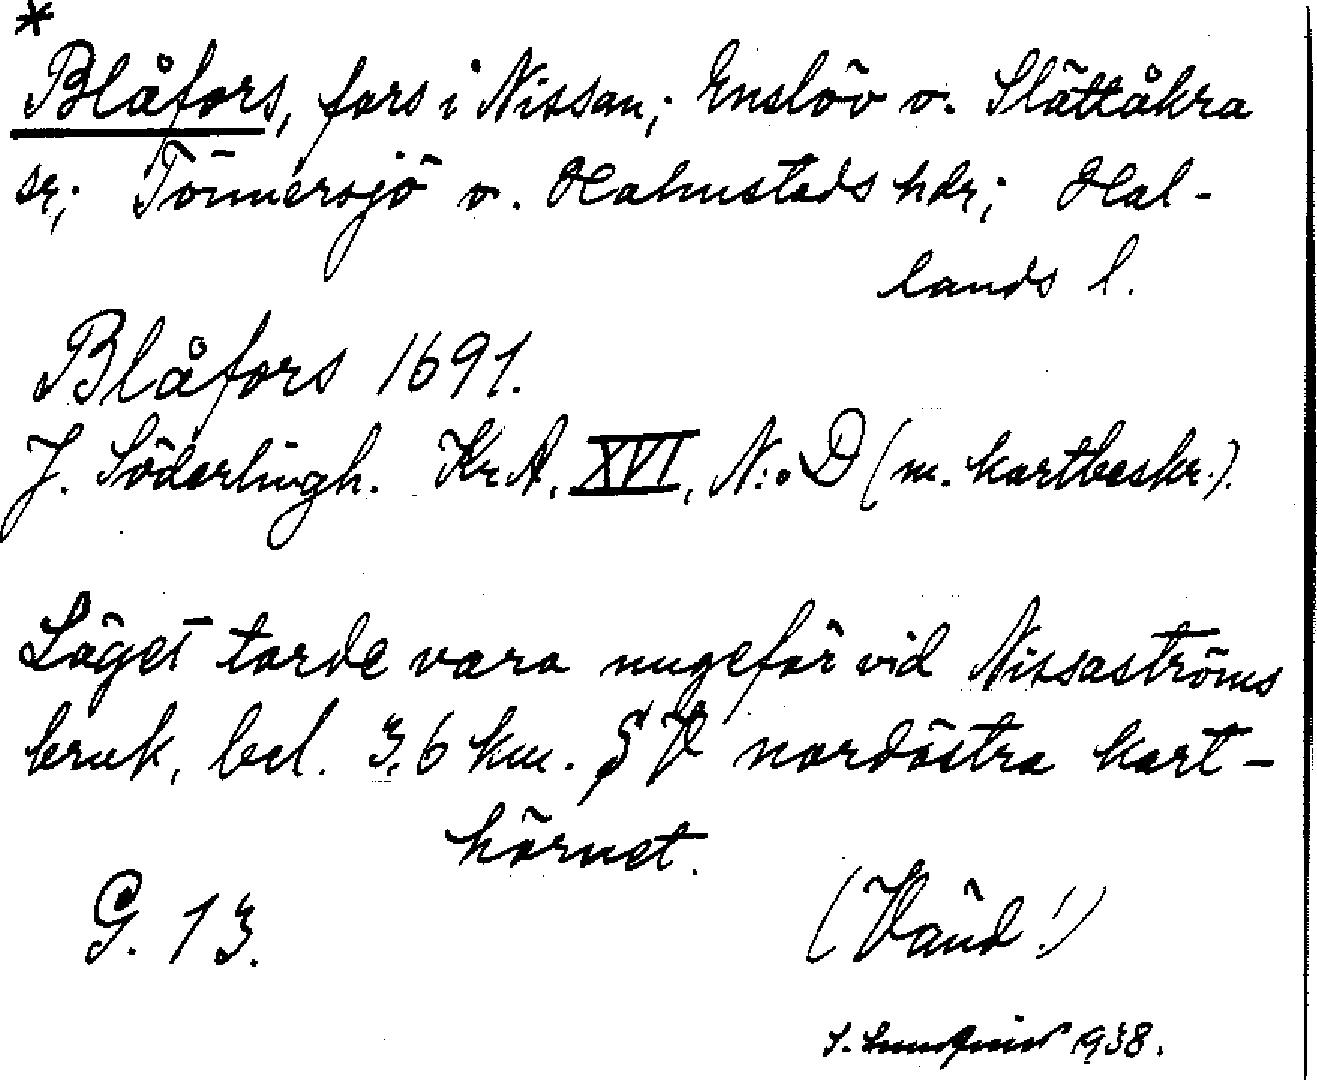 *
Blåfors, fors i Nissan; Enslöv o. Slättåkra
sr; Tönnersjö o. Halmstads hdr; Hal-
lands l.
Blåfors 1691.
J. Söderlingh. Kr A. XVI, N:o D (m. kartbeskr.).
Läget torde vara ungefär vid Nissaströms
bruk, bel. 3,6 km. SV nordöstra kart-
hörnet.
G. 13.
(Vänd!)
S. Lundqvist 1938.